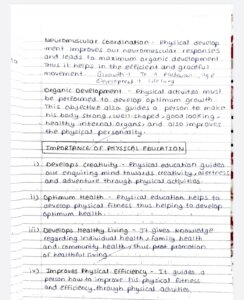 Neuromuscular coordination - Physical develop
ment improves our neuromuscular responses
and leads to maximum organic development
Thus it helps in the efficient and graceful
movement.
Organic Development - Physical activites must
be performed to develop optimum growth
This objective also guides a person to make
his body strong, well shaped, good looking,
healthy internal organs and also improves
the physical personality.
IMPORTANCE OF PHYSICAL EDUCATION
i) Develops Creativity - Physical education guides
our enquiring mind towards creativity, alertness
and adventure through physical activities.
ii) Optimum Health - Physical education helps to
develop physical fitness thus helping to develop
optimum health.
iii) Develops Healthy Living - It gives knowledge
regarding individual health, family health
and community health, thus promotion
of healthful living.
iv) Improves Physical Efficiency - It guides a
person how to improve his physical fitness
and efficiency, through physical activities.